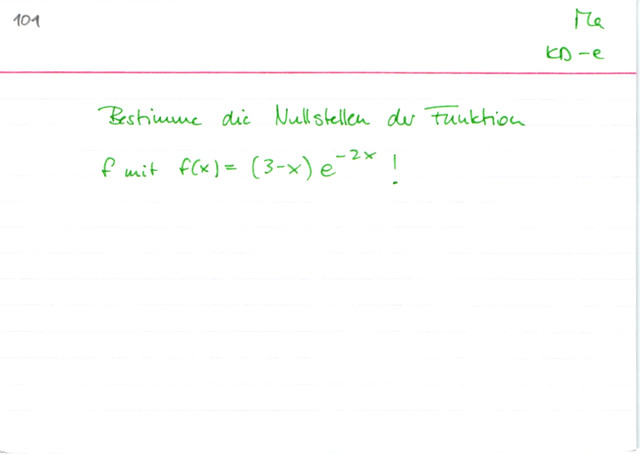 101
Ma
KD-e
Bestimme die Nullstellen der Funktion
f mit f(x) = (3-x) e^{-2x} !